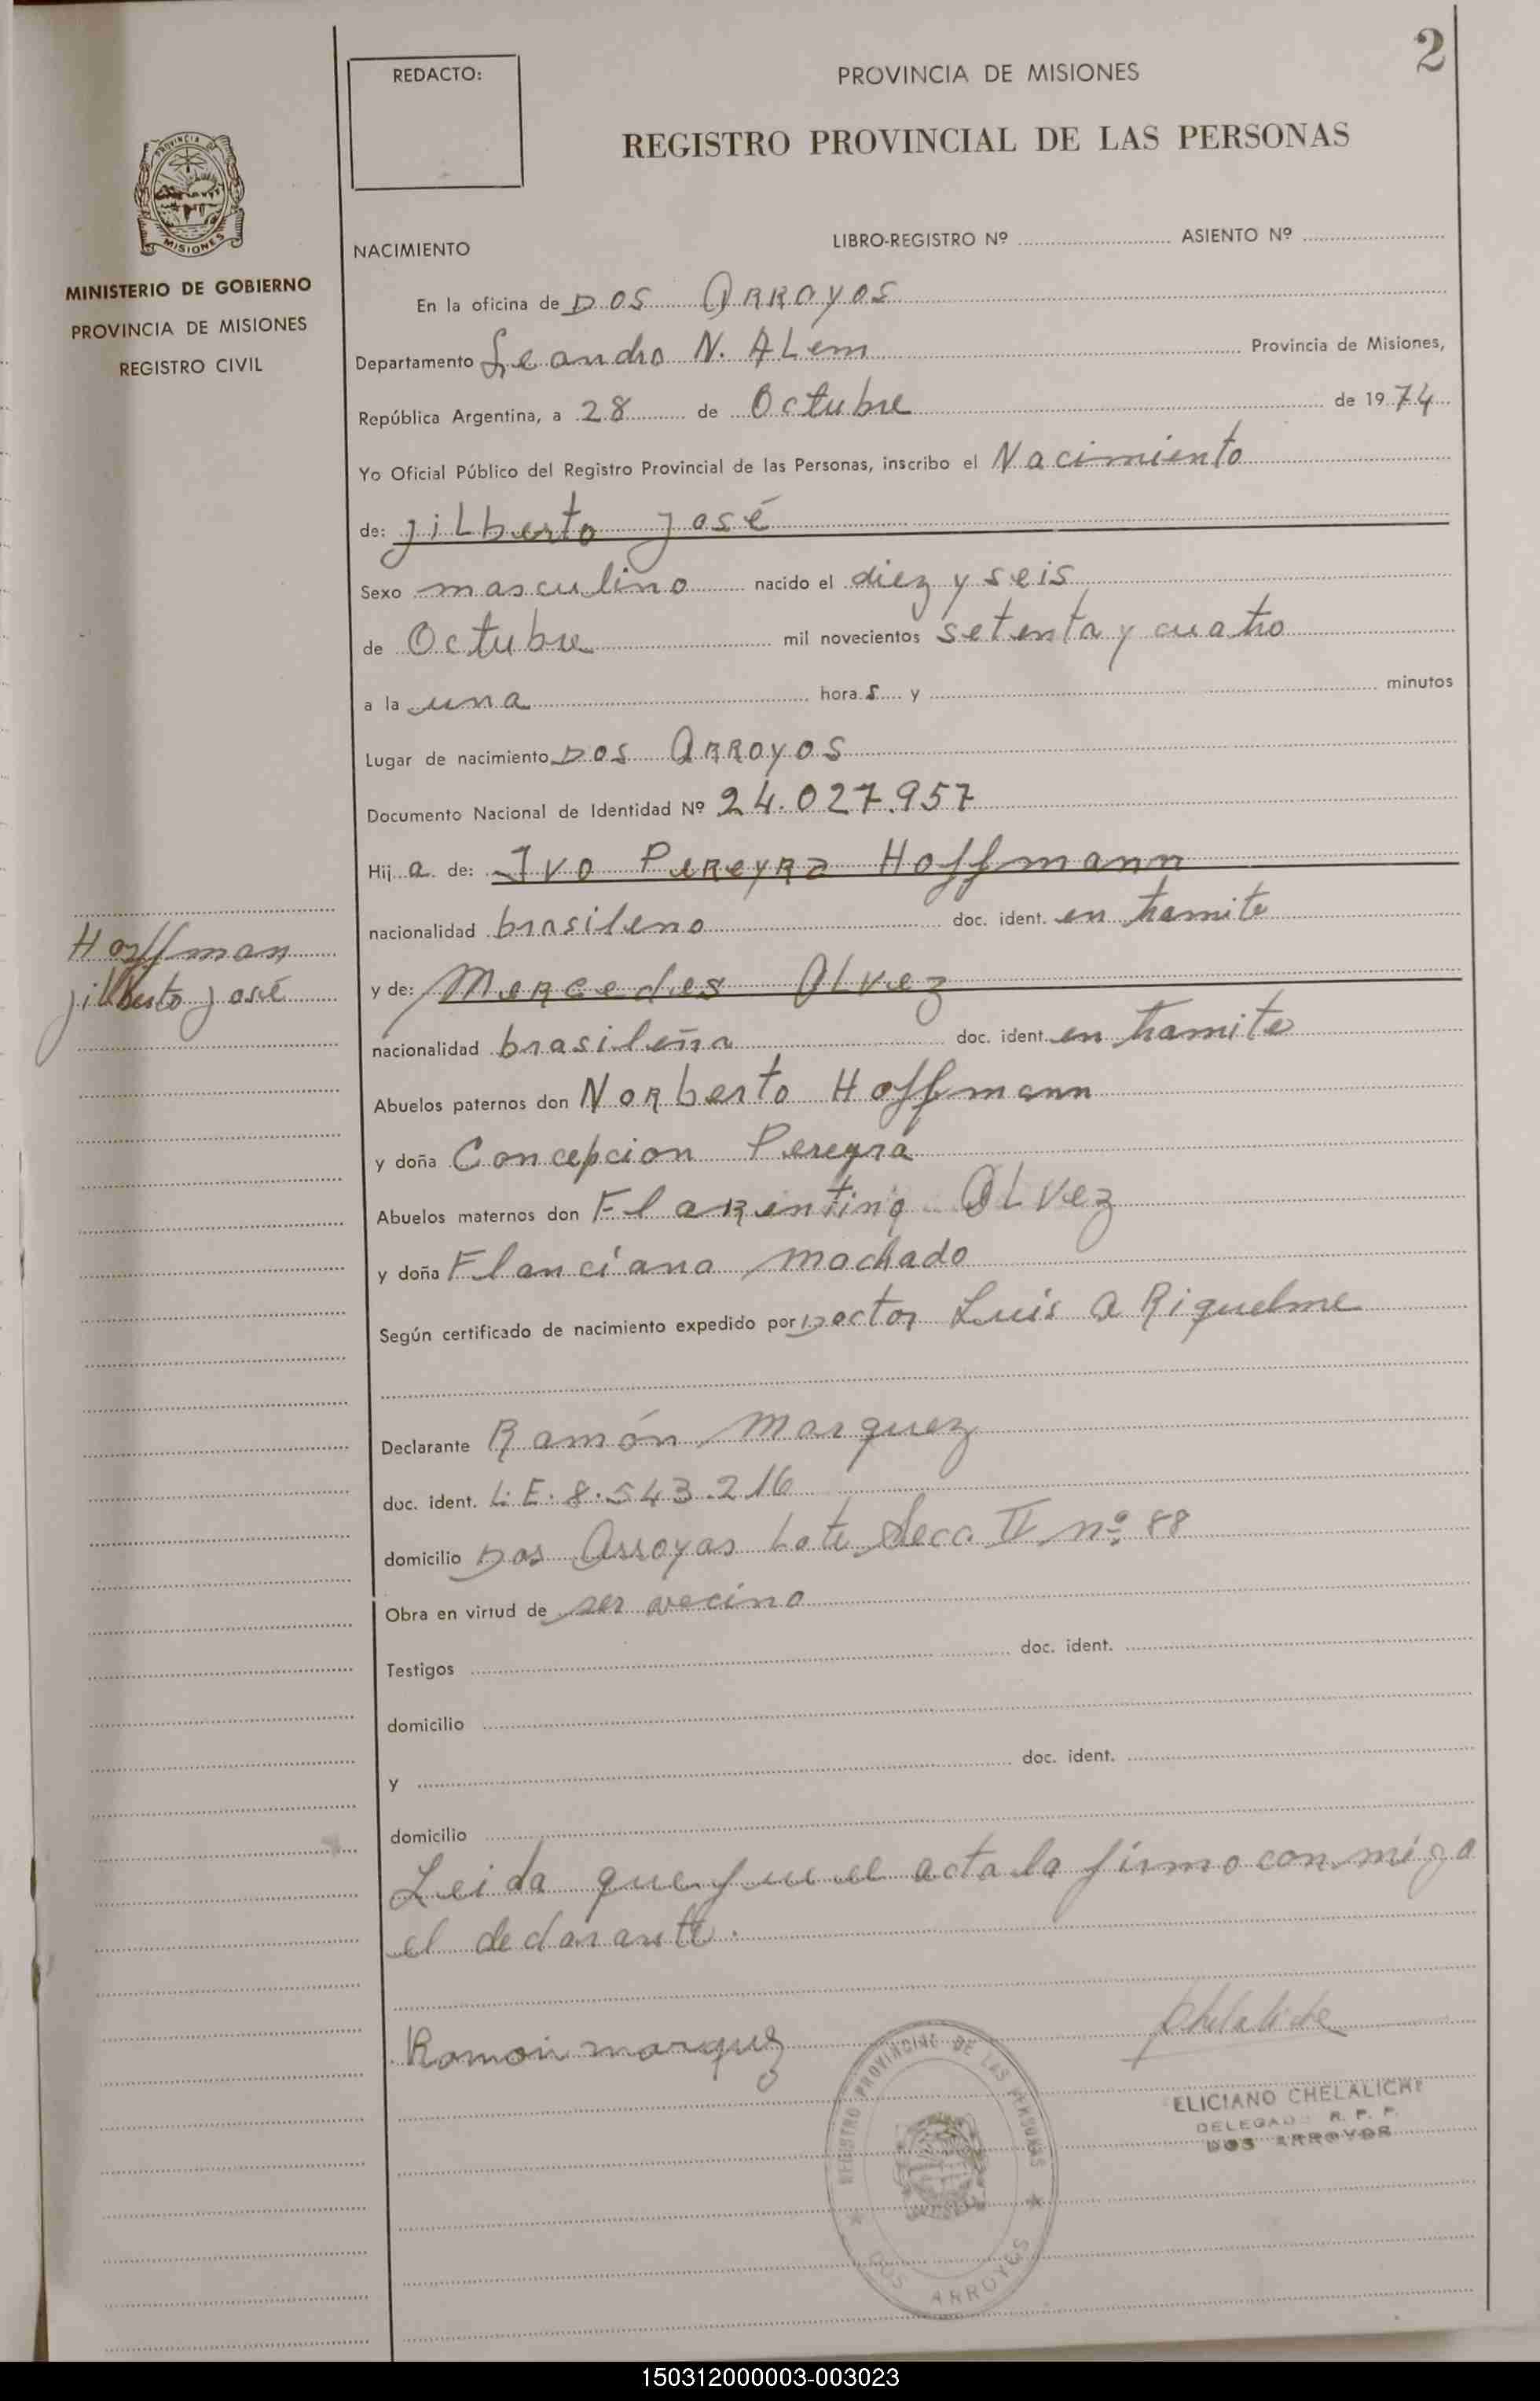 2
REDACTO:
PROVINCIA DE MISIONES
REGISTRO PROVINCIAL DE LAS PERSONAS
PROVINCIA DE
MISIONES
MINISTERIO DE GOBIERNO
PROVINCIA DE MISIONES
REGISTRO CIVIL
NACIMIENTO LIBRO-REGISTRO Nº ASIENTO Nº
En la oficina de DOS ARROYOS
Departamento Leandro N. ALem Provincia de Misiones,
República Argentina, a 28 de Octubre de 1974
Yo Oficial Público del Registro Provincial de las Personas, inscribo el Nacimiento
de: jiLberto José
Sexo masculino nacido el diez y seis
de Octubre mil novecientos setenta y cuatro
a la una horas y minutos
Lugar de nacimiento DOS ARROYOS
Documento Nacional de Identidad Nº 24.027.957
Hija de: Ivo Pereyra Hoffmann
nacionalidad brasileno doc. ident. en tramite
Hoffman
jilberto josé
y de: Mercedes ALvez
nacionalidad brasileña doc. ident. en tramite
Abuelos paternos don Norberto Hoffmann
y doña Concepcion Pereyra
Abuelos maternos don ALvez
y doña machado
Según certificado de nacimiento expedido por Doctor Luis A Riquelme
Declarante Ramón Marquez
doc. ident. L.E. 8.543.216
domicilio Dos Arroyos Lote Secc. nº 88
Obra en virtud de ser vecino
Testigos doc. ident.
domicilio
y doc. ident.
domicilio
Leida que fue el acta la firmo conmigo
el declarante.
Ramon marquez
REGISTRO PROVINCIAL DE LAS PERSONAS
DOS ARROYOS
ELICIANO CHELALICHE
DELEGADO R. P. P.
DOS ARROYOS
150312000003-003023